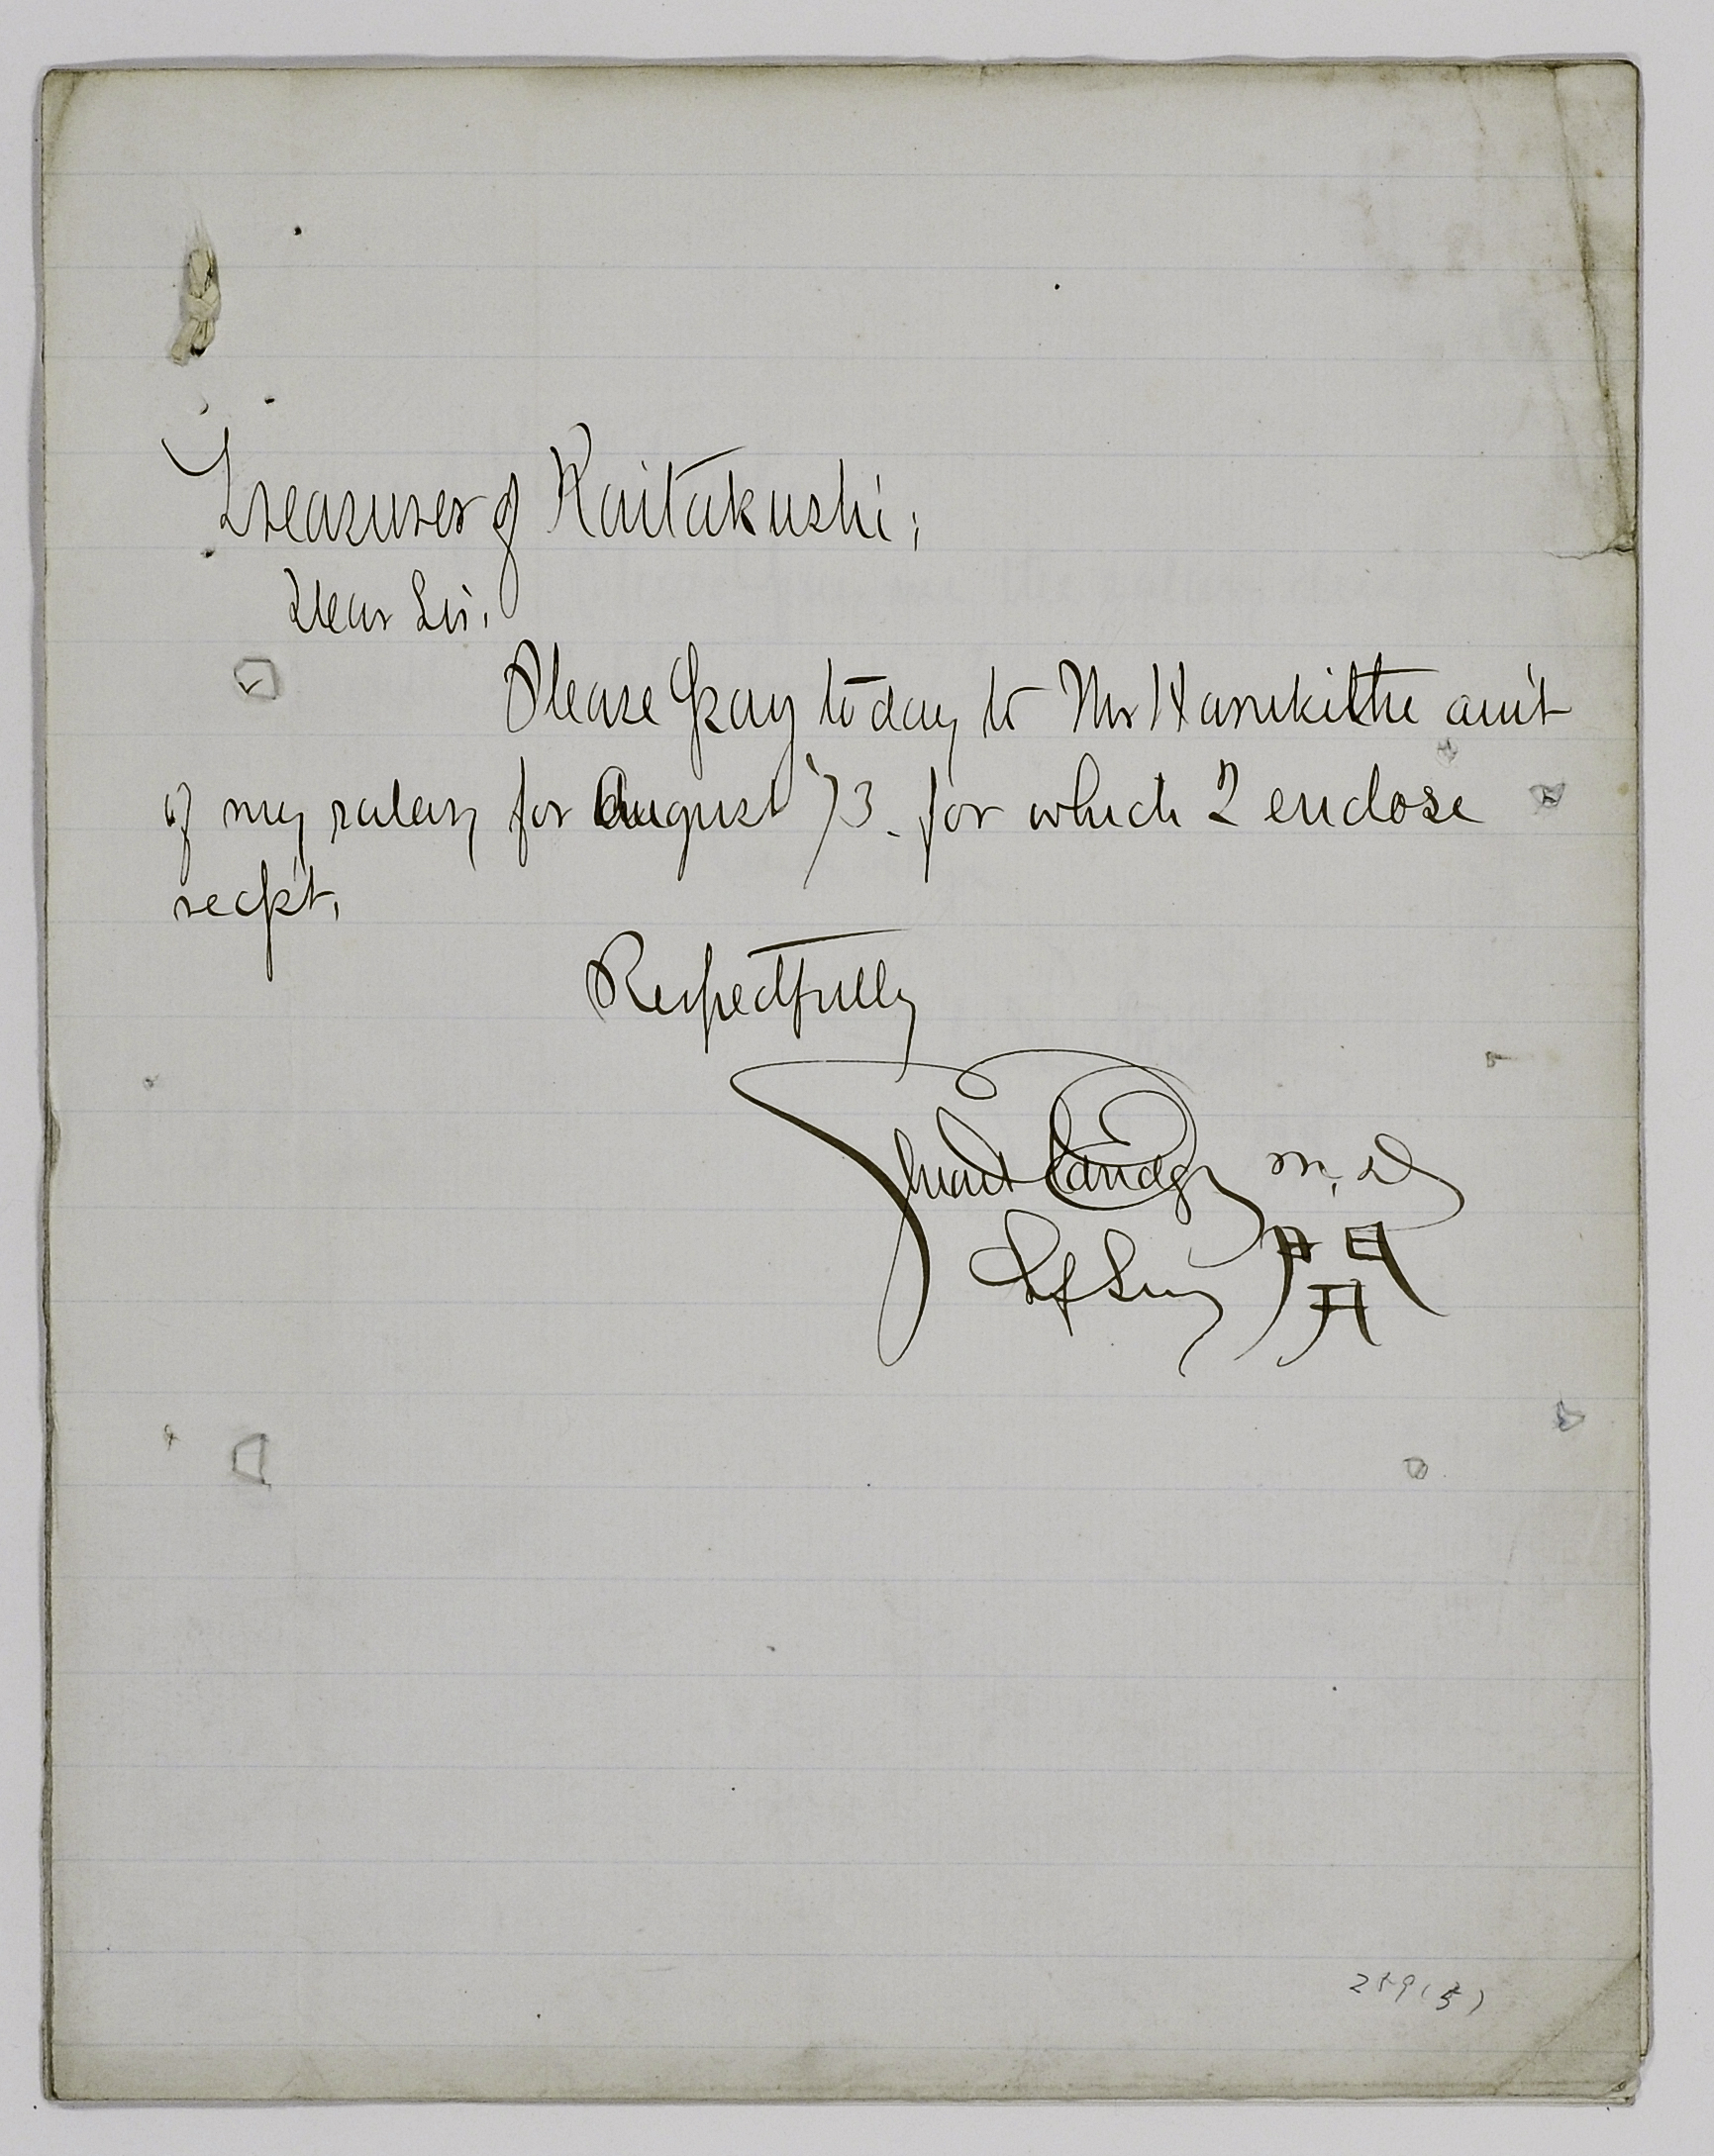 Treasurer of Kaitakushi;
Dear Sir.
Please pay to day to Mr Haruki the am't
of my salary for August '73. for which I enclose
recpt.
Respectfully
Stuart Eldridge M.D.